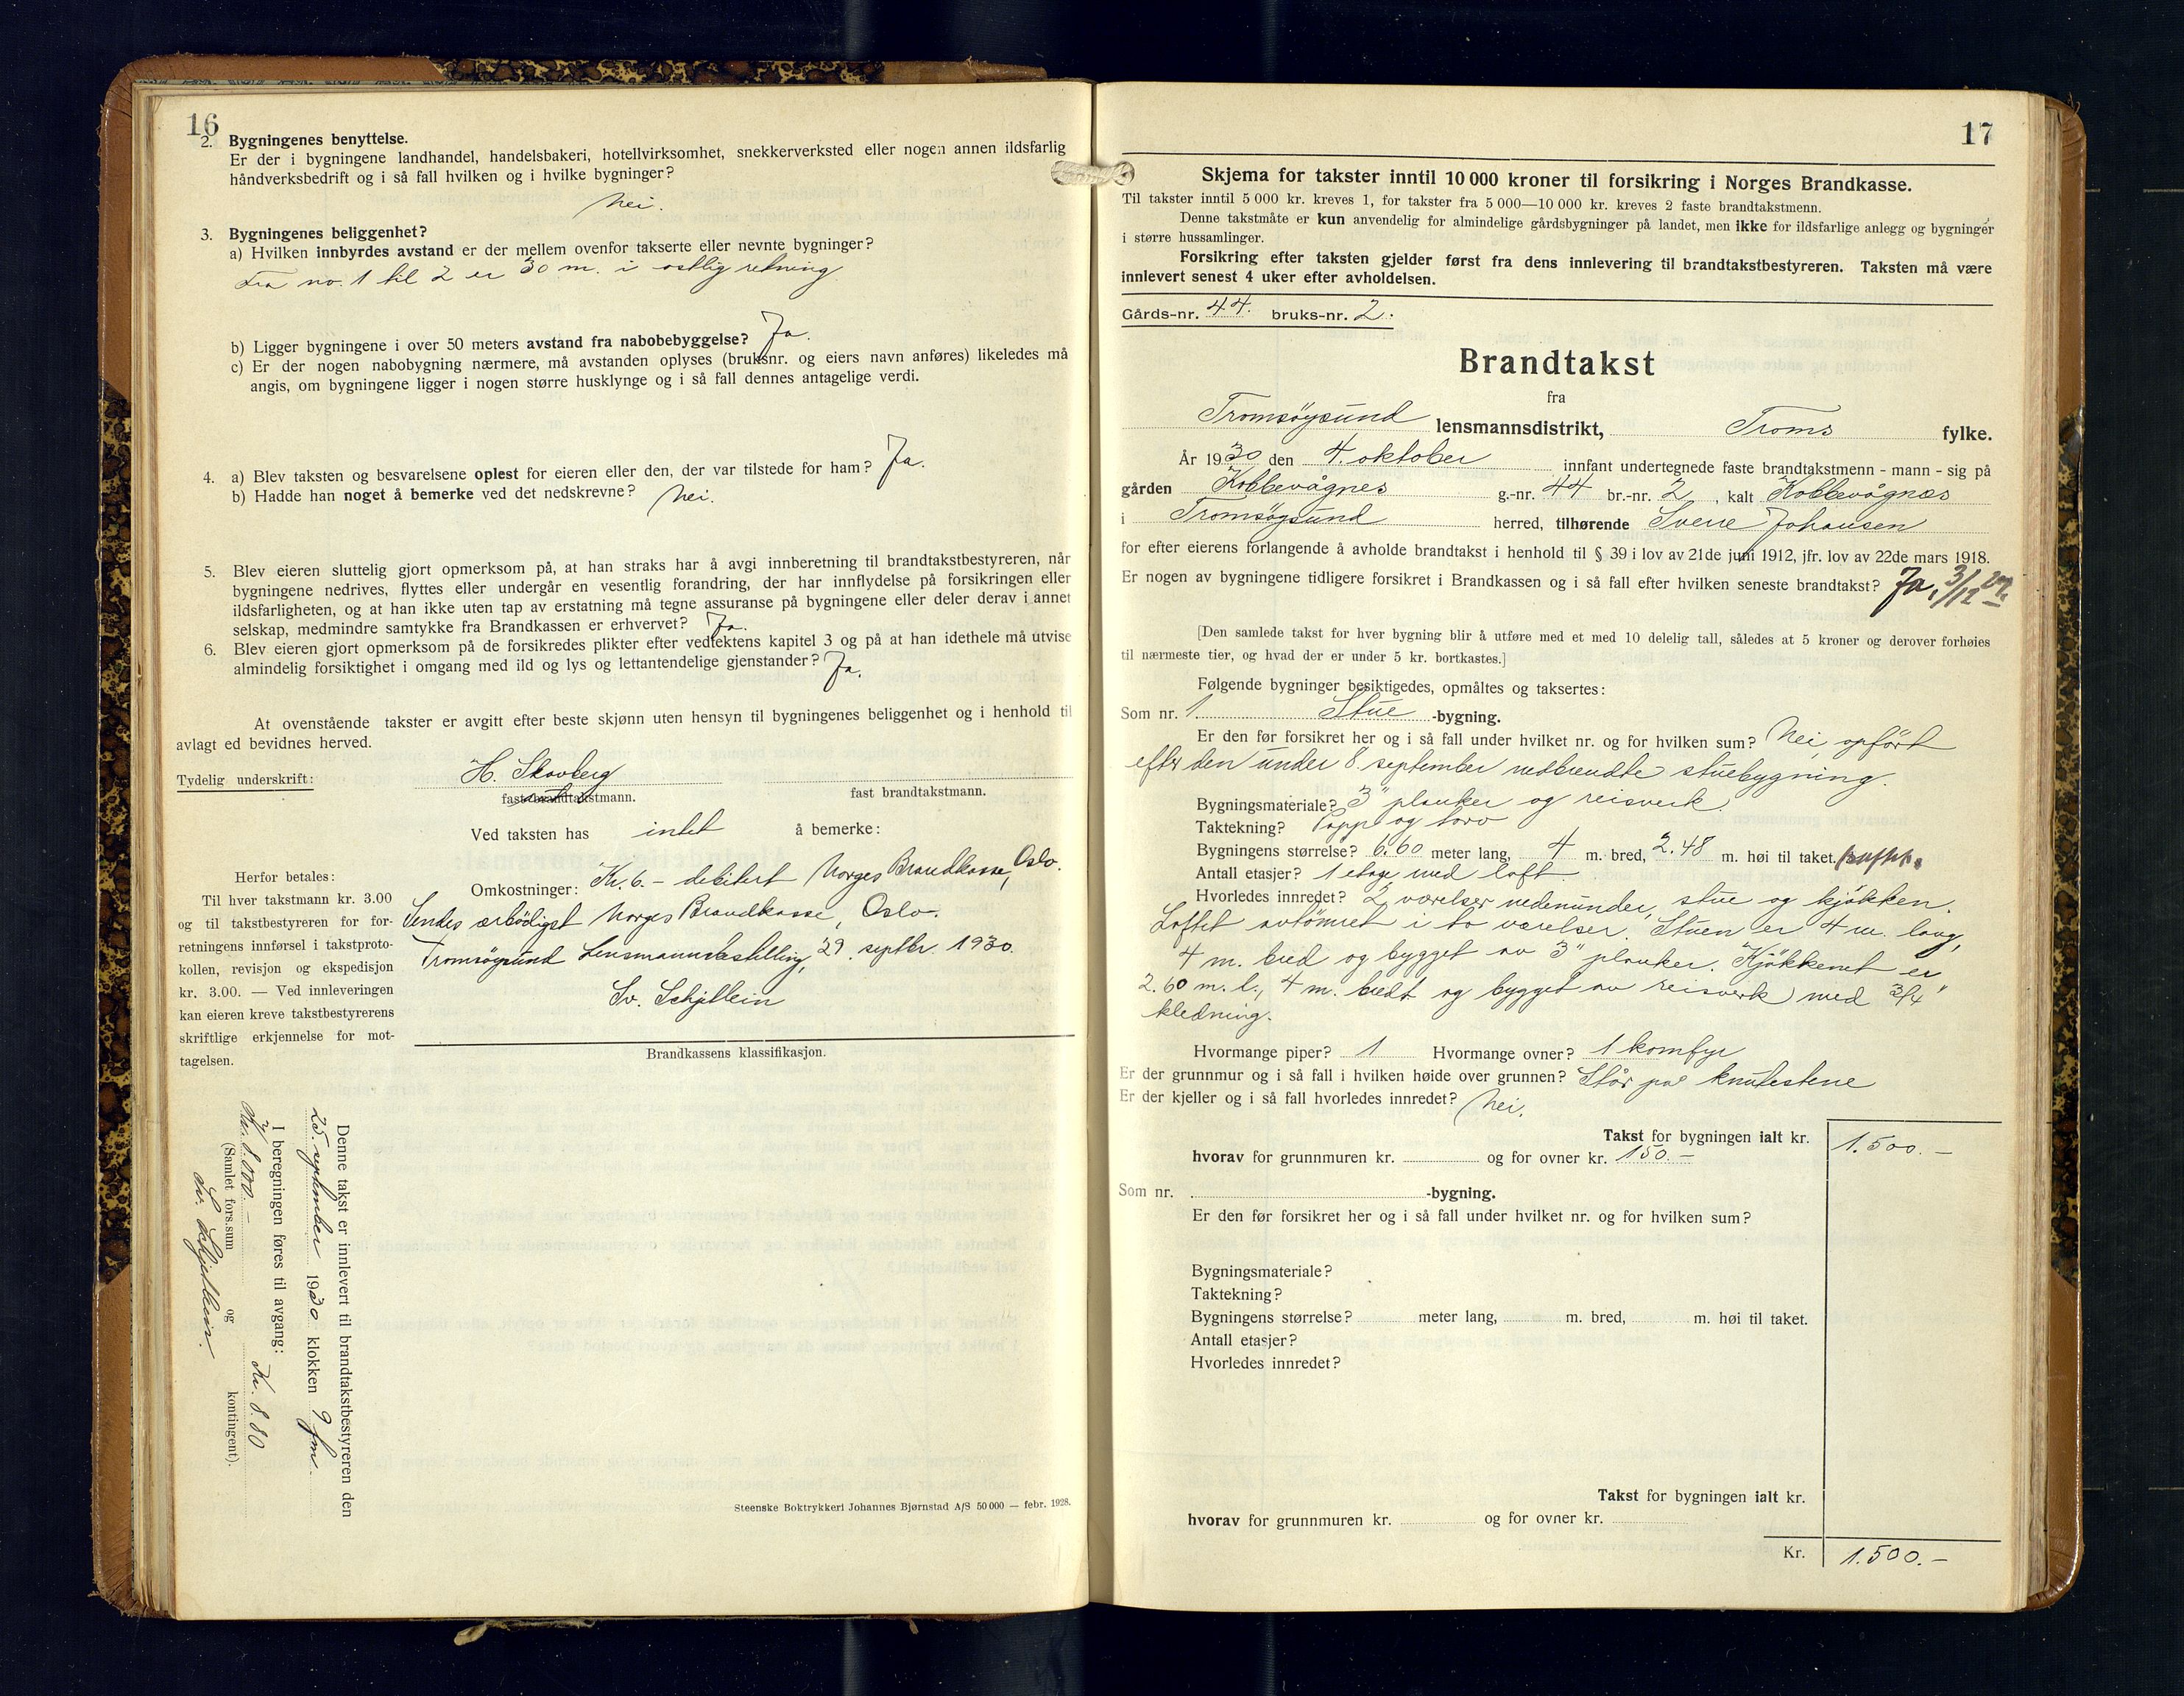 16
2. Bygningenes benyttelse.
Er der i bygningene landhandel, handelsbakeri, hotellvirksomhet, snekkerverksted eller nogen annen ildsfarlig
håndverksbedrift og i så fall hvilken og i hvilke bygninger?
Nei.
3. Bygningenes beliggenhet?
a) Hvilken innbyrdes avstand er der mellem ovenfor takserte eller nevnte bygninger?
Fra no. 1 til 2 er 30 m. i østlig retning
b) Ligger bygningene i over 50 meters avstand fra nabobebyggelse? Ja.
c) Er der nogen nabobygning nærmere, må avstanden oplyses (bruksnr. og eiers navn anføres) likeledes må
angis, om bygningene ligger i nogen større husklynge og i så fall dennes antagelige verdi.
4. a) Blev taksten og besvarelsene oplest for eieren eller den, der var tilstede for ham? Ja.
b) Hadde han noget å bemerke ved det nedskrevne? Nei.
5. Blev eieren sluttelig gjort opmerksom på, at han straks har å avgi innberetning til brandtakstbestyreren, når
bygningene nedrives, flyttes eller undergår en vesentlig forandring, der har innflydelse på forsikringen eller
ildsfarligheten, og at han ikke uten tap av erstatning må tegne assuranse på bygningene eller deler derav i annet
selskap, medmindre samtykke fra Brandkassen er erhvervet? Ja.
6. Blev eieren gjort opmerksom på de forsikredes plikter efter vedtektens kapitel 3 og på at han idethele må utvise
almindelig forsiktighet i omgang med ild og lys og lettantendelige gjenstander? Ja.
At ovenstående takster er avgitt efter beste skjønn uten hensyn til bygningenes beliggenhet og i henhold til
avlagt ed bevidnes herved.
Tydelig underskrift: H. Skovberg
fast brandtakstmann. fast brandtakstmann.
Ved taksten has intet å bemerke:
Omkostninger: Kr. 6.- debitert Norges Brandkasse, Oslo.
Sendes ærbödigst Norges Brandkasse, Oslo.
Tromsöysund Lensmannsbestilling, 29. septbr. 1930.
Sv. Schjetlein
Herfor betales:
Til hver takstmann kr. 3.00
og til takstbestyreren for for-
retningens innførsel i takstproto-
kollen, revisjon og ekspedisjon
kr. 3.00. — Ved innleveringen
kan eieren kreve takstbestyrerens
skriftlige erkjennelse for mot-
tagelsen.
Brandkassens klassifikasjon.
Denne takst er innlevert til brandtakstbestyreren den
25. september 1930 klokken 9 fm.
I beregningen føres til avgang:
Kr. 8.000.- Kr. 8.80
(Samlet fors.sum og kontingent).
Sv. Schjetlein.
Steenske Boktrykkeri Johannes Bjørnstad A/S 50 000 — febr. 1928.
17
Skjema for takster inntil 10 000 kroner til forsikring i Norges Brandkasse.
Til takster inntil 5 000 kr. kreves 1, for takster fra 5 000—10 000 kr. kreves 2 faste brandtakstmenn.
Denne takstmåte er kun anvendelig for almindelige gårdsbygninger på landet, men ikke for ildsfarlige anlegg og bygninger
i større hussamlinger.
Forsikring efter taksten gjelder først fra dens innlevering til brandtakstbestyreren. Taksten må være
innlevert senest 4 uker efter avholdelsen.
Gårds-nr. 44. bruks-nr. 2.
Brandtakst
fra
Tromsöysund lensmannsdistrikt, Troms fylke.
År 1930 den 4. oktober innfant undertegnede faste brandtakstmenn - mann - sig på
gården Kobbevågnes g.-nr. 44 br.-nr. 2, kalt Kobbevågnes
i Tromsöysund herred, tilhørende Sverre Johansen
for efter eierens forlangende å avholde brandtakst i henhold til § 39 i lov av 21de juni 1912, jfr. lov av 22de mars 1918.
Er nogen av bygningene tidligere forsikret i Brandkassen og i så fall efter hvilken seneste brandtakst? Ja, 3/12
[Den samlede takst for hver bygning blir å utføre med et med 10 delelig tall, således at 5 kroner og derover forhøies
til nærmeste tier, og hvad der er under 5 kr. bortkastes.]
Følgende bygninger besiktigedes, opmåltes og taksertes:
Som nr. 1 Stue -bygning.
Er den før forsikret her og i så fall under hvilket nr. og for hvilken sum? Nei, opfört
efter den under 8. september nedbrendte stuebygning.
Bygningsmateriale? 3" planker og reisverk.
Taktekning? Papp og torv
Bygningens størrelse? 6.60 meter lang, 4 m. bred, 2.48 m. høi til taket.
Antall etasjer? 1 etage med loft.
Hvorledes innredet? 2 værelser nedenunder, stue og kjökken.
Loftet avtömret i to værelser. Stuen er 4 m. lang,
4 m. bred og bygget av 3" planker. Kjökkenet er
2.60 m. l., 4 m. bredt og bygget av reisverk med 3/4"
kledning.
Hvormange piper? 1 Hvormange ovner? 1 komfyr
Er der grunnmur og i så fall i hvilken høide over grunnen? Står på knutestene
Er der kjeller og i så fall hvorledes innredet? Nei.
Takst for bygningen ialt kr. 1.500.-
hvorav for grunnmuren kr. og for ovner kr. 150.-
Som nr. -bygning.
Er den før forsikret her og i så fall under hvilket nr. og for hvilken sum?
Bygningsmateriale?
Taktekning?
Bygningens størrelse? meter lang, m. bred, m. høi til taket.
Antall etasjer?
Hvorledes innredet?
Takst for bygningen ialt kr.
hvorav for grunnmuren kr. og for ovner kr.
Kr. 1.500.-